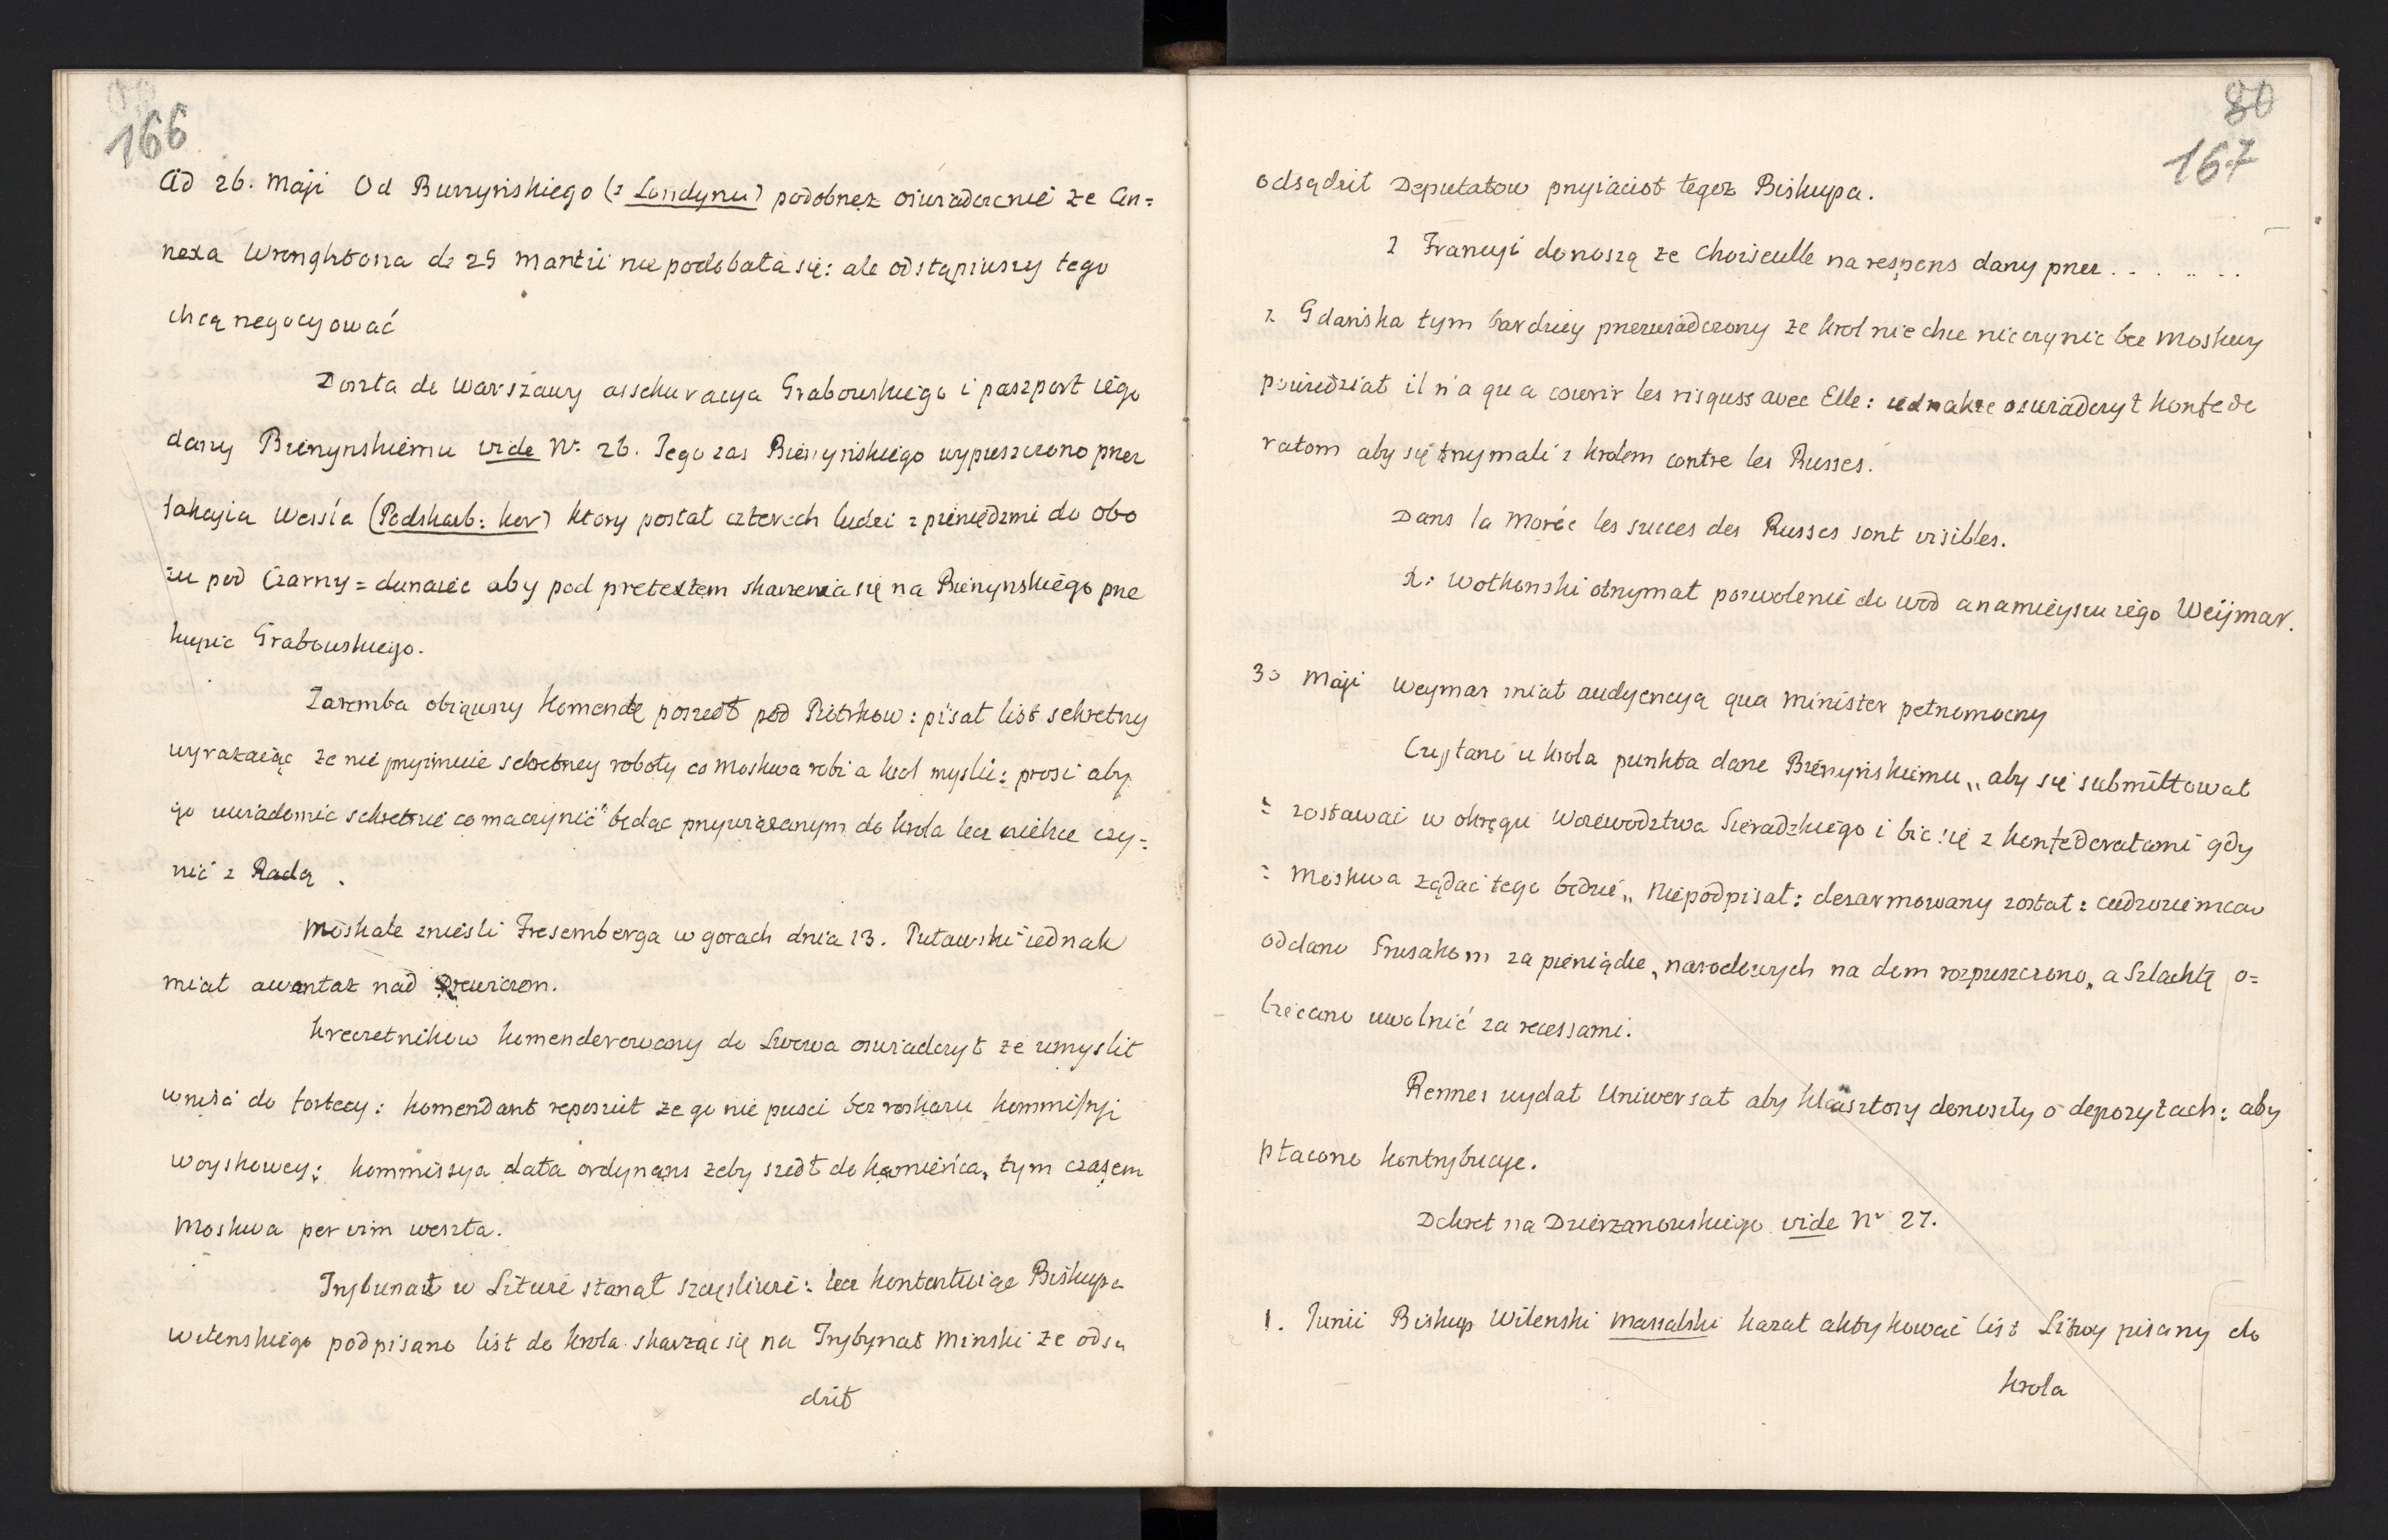 166
Ad 26. Maji Od Burzyńskiego (z Londynu) podobnez oswiadczenie ze An=
nexa Wronghtona de 29 Martii nie podobała się: ale odstąpiwszy tego
chcą negocyować
Doszła do Warszawy assekuracya Grabowskiego i paszport iego
dany Bierzynskiemu vide Nr. 26. Tego zas Bierzyńskiego wypuszczono przez
fakcyia Wessla (Podskarb: kor) ktory posłał czterech ludzi z pieniędzmi do obo
zu pod Czarny=dunaiec aby pod pretextem skarzenia się na Bierzynskiego prze
kupic Grabowskiego.
Zaremba obiąwszy Komendę poszedł pod Piotrkow: pisał list sekretny
wyrazaiąc ze nie przyimuie sekretney roboty co Moskwa robi a krol mysli: prosi aby
go uwiadomic sekretnie co ma czynić będąc przywiązanym do krola lecz niechce czy=
nić z Radą.
Moskale znieśli Fresemberga w gorach dnia 13. Puławski iednak
miał awantaz nad Drewiczem.
Kreczetnikow komenderowany do Lwowa oswiadczył ze umyslił
wnisć do fortecy: komendant reposuit ze go nie pusci bez roskazu kommissyi
woyskowey: kommissya dała ordynans zeby szedł do kamieńca, tym czasem
Moskwa per vim weszła.
Trybunał w Litwie stanął szczęsliwie: lecz kontentuiąc Biskupa
wilenskiego podpisano list do krola skarząc się na Trybynał Minski ze odsą
dził
80
167
odsądził Deputatow przyiacioł tegoz Biskupa.
z Francyi donoszą ze Choiseulle na respons dany przez . . . . . .
z Gdańska tym bardziey przeswiadczony ze krol nie chce nic czynic bez Moskwy
powiedział il n'a qu a courir les risques avec Elle: iednakze oswiadczył konfede
ratom aby się trzymali z krolem contre les Russes.
Dans la Morée les succes des Russes sont visibles.
X: Wołkonski otrzymał pozwolenie do wód a na mieyscu iego Weijmar.
30 Maji Weymar miał audyencyą qua Minister pełnomocny
Czytano u krola punkta dane Bierzyńskiemu „ aby się submittował
= zostawać w okręgu Woiewodztwa Sieradzkiego i bic się z konfederatami gdy
= Moskwa ządać tego będzie „ Niepodpisał: dezarmowany został: cudzoziemcow
oddano Prusakom za pieniądze, narodowych na dom rozpuszczono, a Szlachtę o=
biecano uwolnić za recessami.
Rennes wydał Uniwersał aby klasztory donosiły o depozytach: aby
płacono kontrybucye.
Dekret na Dzierzanowskiego vide Nr 27.
1. Iunii Biskup Wilenski Massalski kazał aktykować list Litwy pisany do
krola